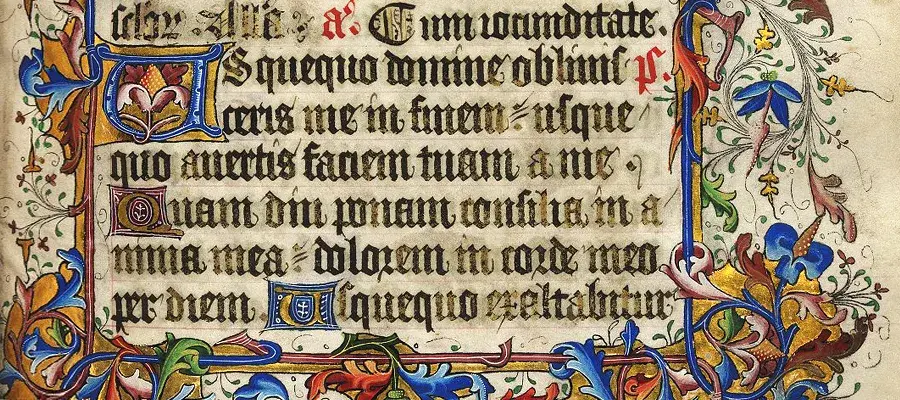 a̅. Cum iocunditate.
USquequo domine obliuis ps.
ceris me in finem : usque
quo auertis faciem tuam a me .
Quam diu ponam consilia in a
nima mea : dolorem in corde meo
per diem . Usquequo exaltabitur